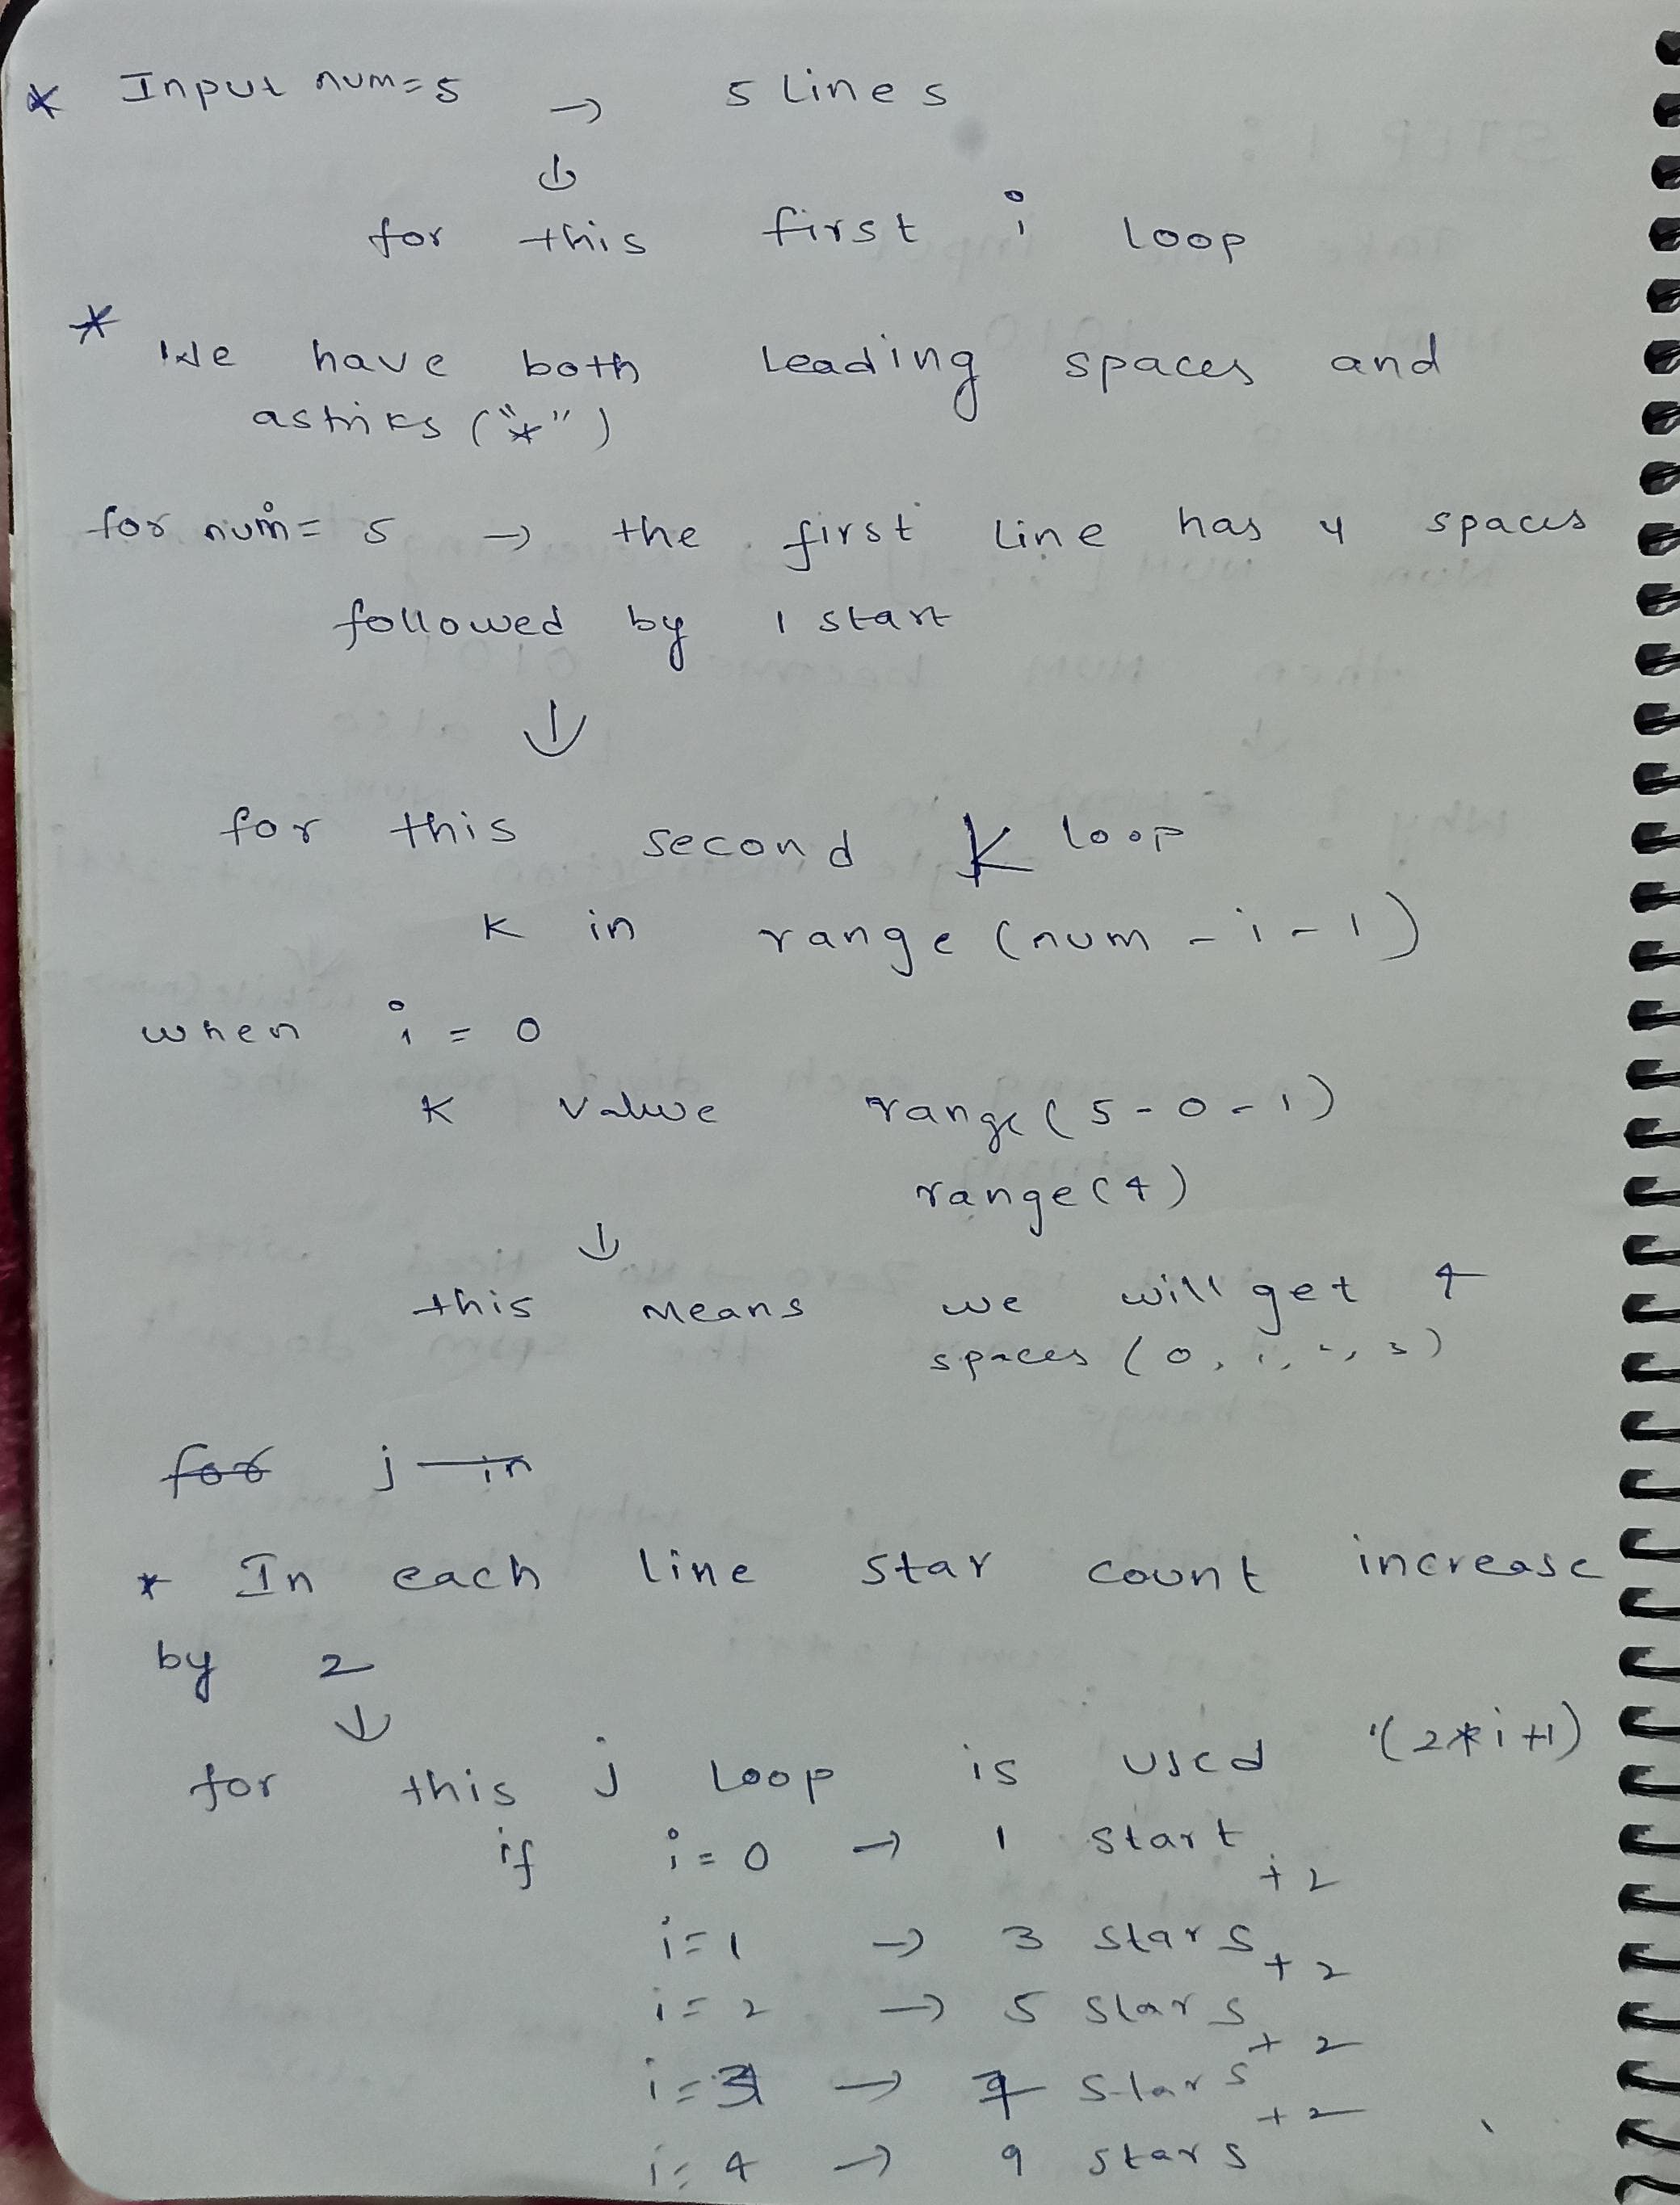 * Input num=5 → 5 Lines
↓
for this first i loop
* We have both Leading spaces and
astriks ("*")
for num = 5 → the first Line has 4 spaces
followed by 1 start
↓
for this second K loop
K in range (num - i - 1)
when i = 0
K value range (5-0-1)
range(4)
↓
this means we will get 4
spaces (0, 1, 2, 3)
for j in
* In each line star count increase
by 2
↓
for this j Loop is used (2*i+1)
if i=0 → 1 start
+2
i=1 → 3 stars
+2
i=2 → 5 stars
+2
i=3 → 7 stars
+2
i=4 → 9 stars